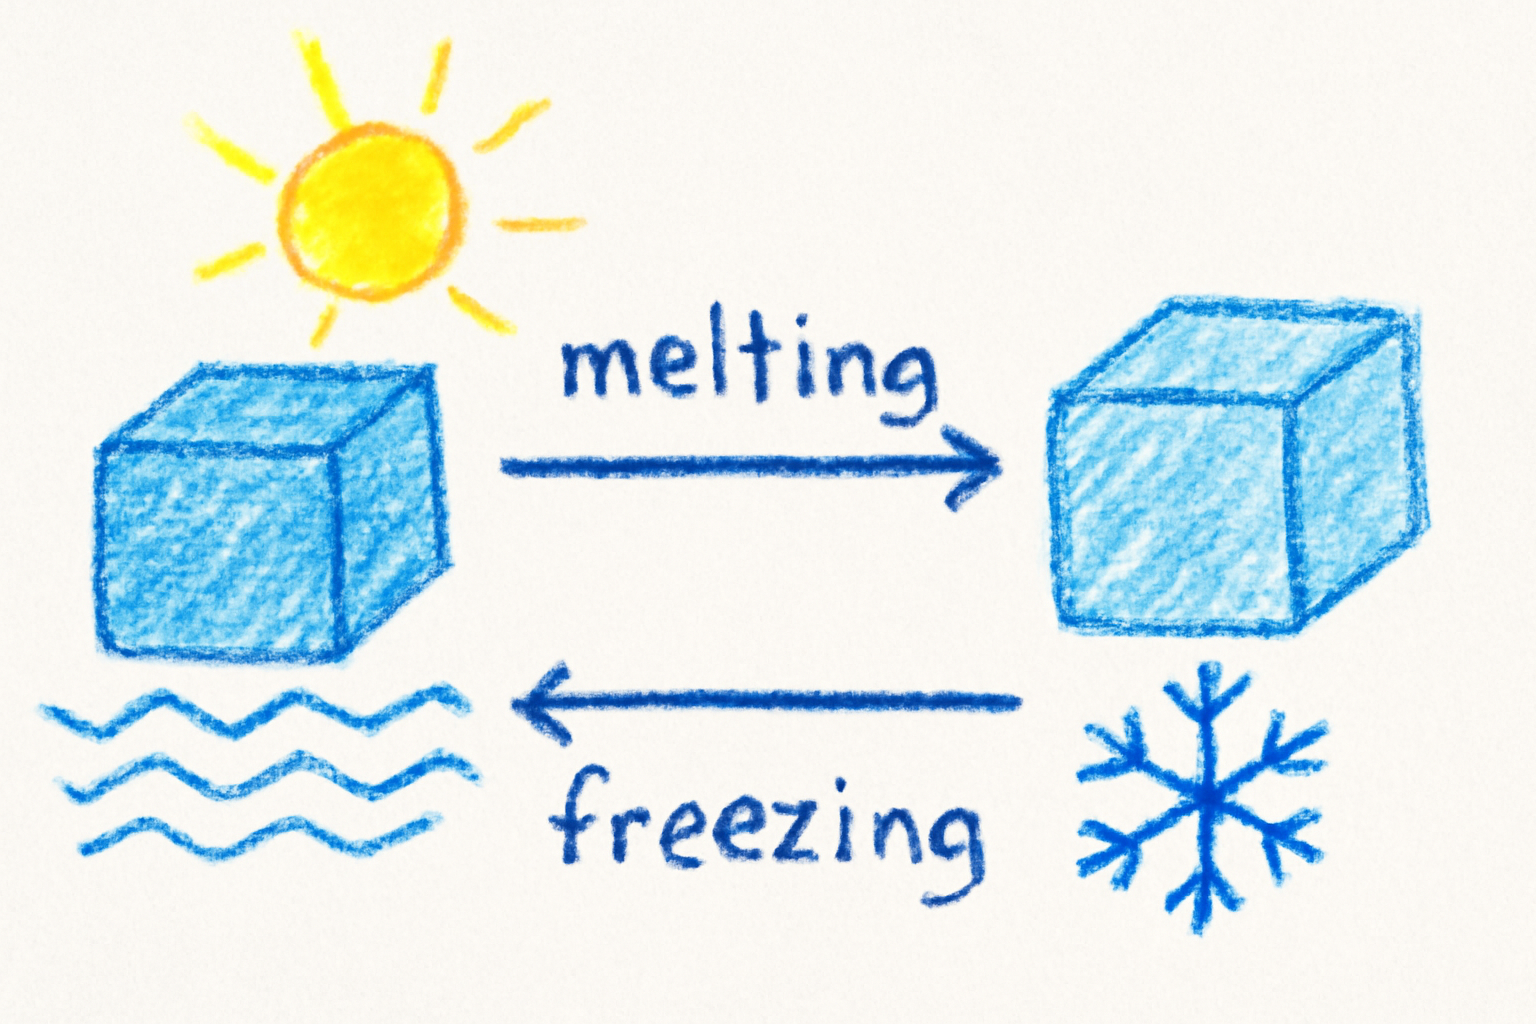 melting
freezing